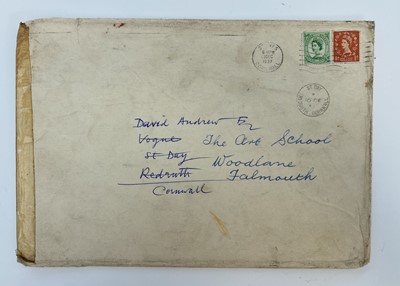 David Andrew Esq
Vogue The Art School
St Day Woodlane
Redruth Falmouth
Cornwall